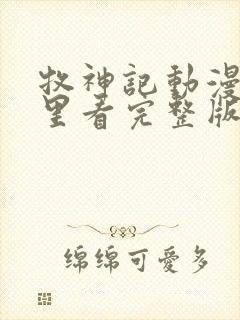 牧神記動漫
里看完整版
绵绵可愛多